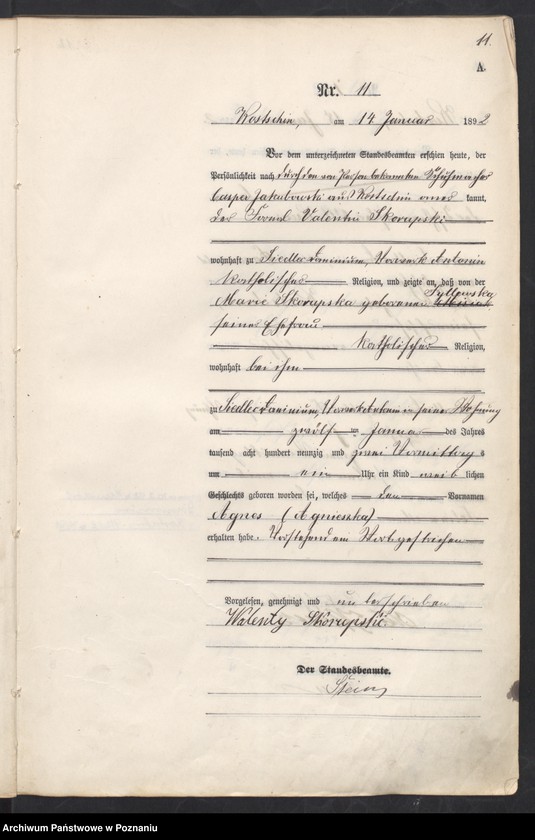 11.
A.
Nr. 11
Kostschin, am 14 Januar 1892
Vor dem unterzeichneten Standesbeamten erschien heute, der
Persönlichkeit nach durch den von Person bekannten Schuhmacher
Caspar Jakubowski aus Kostschin aner kannt,
der Fornal Valentin Skorupski
wohnhaft zu Siedlec Dominium, Vorwerk Antonin
katholischer Religion, und zeigte an, daß von der
Marie Skorupska geborenen Tyllowska
seiner Ehefrau
katholischer Religion,
wohnhaft bei ihm
zu Siedlec Dominium, in seiner Wohnung
am zwölf ten Januar des Jahres
tausend acht hundert neunzig und zwei Vormittag s
um ein Uhr ein Kind weib lichen
Geschlechts geboren worden sei, welches den Vornamen
Agnes (Agnieszka)
erhalten habe. Vorstehend ein Wort gestrichen
Vorgelesen, genehmigt und unterschrieben
Walenty Skorupski
Der Standesbeamte.
Archiwum Państwowe w Poznaniu